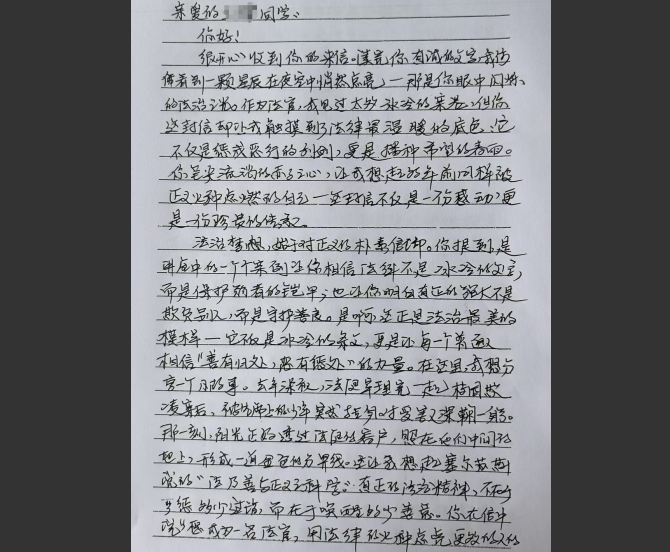 亲爱的 同学：
你好！
很开心收到你的来信。读完你真诚的文字，我仿
佛看到一颗星辰在夜空中悄然点亮，—那是你眼中闪烁
的法治之光。作为法官，我见过太多冰冷的案卷，但你
这封信却让我触摸到了法律最温暖的底色，它
不仅是惩戒恶行的利剑，更是播种希望的春雨。
你笔尖流淌的赤子心，让我想起多年前同样被
正义火种点燃的自己—这封信不仅是一份感动，更
是一份珍贵的传承。
法治梦想，始于对正义的朴素信仰。你提到，是
课本中的一个个案例让你相信法律不是冰冷的文字，
而是保护弱者的铠甲；也让你明白真正的强大不是
欺负别人，而是守护善良。是啊，这正是法治最美的
模样—它不仅是冰冷的条文，更是让每一个普通人
相信“善有归处，恶有惩处”的力量。在这里，我想分
享一个小故事。去年深秋，法庭审理完一起校园欺
凌案后，被告席上的少年突然转身对受害人深鞠一躬。
那一刻，阳光正好透过法庭的窗户，照在他们中间的
地上，形成一道金色的分界线。这让我想起塞尔苏
的“法乃善与正义之科学”。真正的法治精神，不在于
惩的少 ，而在于唤 的少善意。你在信中
说“想成为一名法官，用法律的火种点亮更多的人的